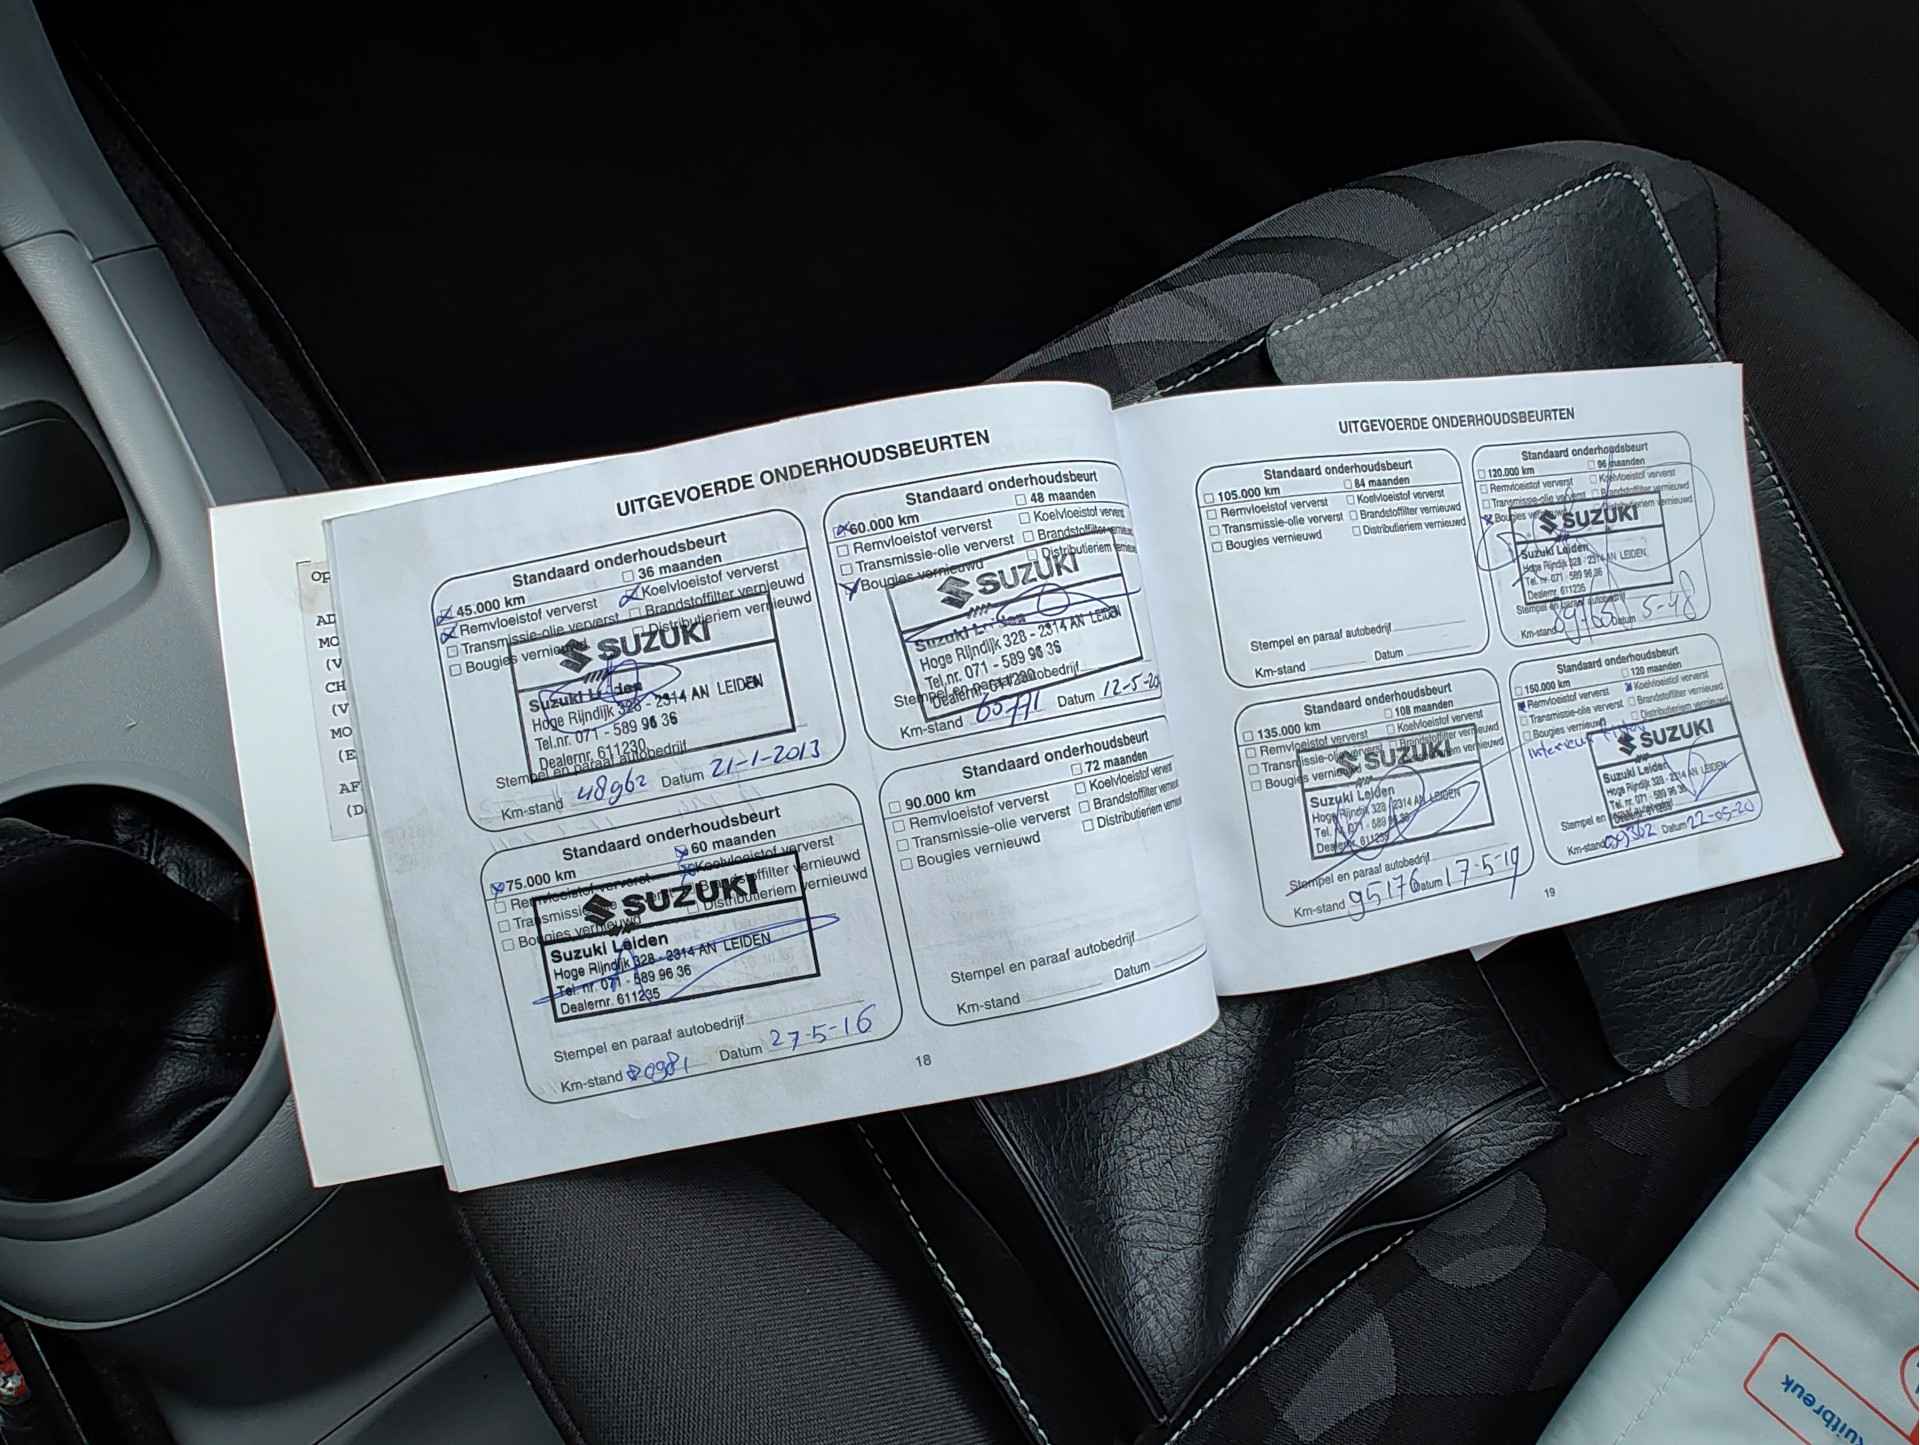 Op
AD
MO
(V
CH
(V
MO
(E
AF
(D
UITGEVOERDE ONDERHOUDSBEURTEN
Standaard onderhoudsbeurt
45.000 km 36 maanden
Remvloeistof ververst Koelvloeistof ververst
Transmissie-olie ververst Brandstoffilter vernieuwd
Bougies vernieuwd Distributieriem vernieuwd
SUZUKI
Suzuki Leiden
Hoge Rijndijk 328 - 2314 AN LEIDEN
Tel.nr. 071 - 589 96 36
Dealernr. 611230
Stempel en paraaf autobedrijf
Km-stand 48962 Datum 21-1-2013
Standaard onderhoudsbeurt
60.000 km 48 maanden
Remvloeistof ververst Koelvloeistof ververst
Transmissie-olie ververst Brandstoffilter vernieuwd
Bougies vernieuwd Distributieriem vernieuwd
SUZUKI
Suzuki Leiden
Hoge Rijndijk 328 - 2314 AN LEIDEN
Tel.nr. 071 - 589 96 36
Dealernr. 611230
Stempel en paraaf autobedrijf
Km-stand Datum 12-5-20
Standaard onderhoudsbeurt
75.000 km 60 maanden
Remvloeistof ververst Koelvloeistof ververst
Transmissie-olie ververst Brandstoffilter vernieuwd
Bougies vernieuwd Distributieriem vernieuwd
SUZUKI
Suzuki Leiden
Hoge Rijndijk 328 - 2314 AN LEIDEN
Tel. nr. 071 - 589 96 36
Dealernr. 611235
Stempel en paraaf autobedrijf
Km-stand 80981 Datum 27-5-16
Standaard onderhoudsbeurt
90.000 km 72 maanden
Remvloeistof ververst Koelvloeistof ververst
Transmissie-olie ververst Brandstoffilter vernieuwd
Bougies vernieuwd Distributieriem vernieuwd
Stempel en paraaf autobedrijf
Km-stand Datum
18
UITGEVOERDE ONDERHOUDSBEURTEN
Standaard onderhoudsbeurt
105.000 km 84 maanden
Remvloeistof ververst Koelvloeistof ververst
Transmissie-olie ververst Brandstoffilter vernieuwd
Bougies vernieuwd Distributieriem vernieuwd
Stempel en paraaf autobedrijf
Km-stand Datum
Standaard onderhoudsbeurt
120.000 km 96 maanden
Remvloeistof ververst Koelvloeistof ververst
Transmissie-olie ververst Brandstoffilter vernieuwd
Bougies vernieuwd Distributieriem vernieuwd
SUZUKI
Suzuki Leiden
Hoge Rijndijk 328 - 2314 AN LEIDEN
Tel. nr. 071 - 589 96 36
Dealernr. 611235
Stempel en paraaf autobedrijf
Km-stand Datum
Standaard onderhoudsbeurt
135.000 km 108 maanden
Remvloeistof ververst Koelvloeistof ververst
Transmissie-olie ververst Brandstoffilter vernieuwd
Bougies vernieuwd Distributieriem vernieuwd
SUZUKI
Suzuki Leiden
Hoge Rijndijk 328 - 2314 AN LEIDEN
Tel. nr. 071 - 589 96 36
Dealernr. 611235
Stempel en paraaf autobedrijf
Km-stand 95176 Datum 17-5-19
Standaard onderhoudsbeurt
150.000 km 120 maanden
Remvloeistof ververst Koelvloeistof ververst
Transmissie-olie ververst Brandstoffilter vernieuwd
Bougies vernieuwd Distributieriem vernieuwd
Interieur filter
SUZUKI
Suzuki Leiden
Hoge Rijndijk 328 - 2314 AN LEIDEN
Tel. nr. 071 - 589 96 36
Stempel en paraaf autobedrijf
Km-stand Datum 22-05-20
19
Ruitbreuk